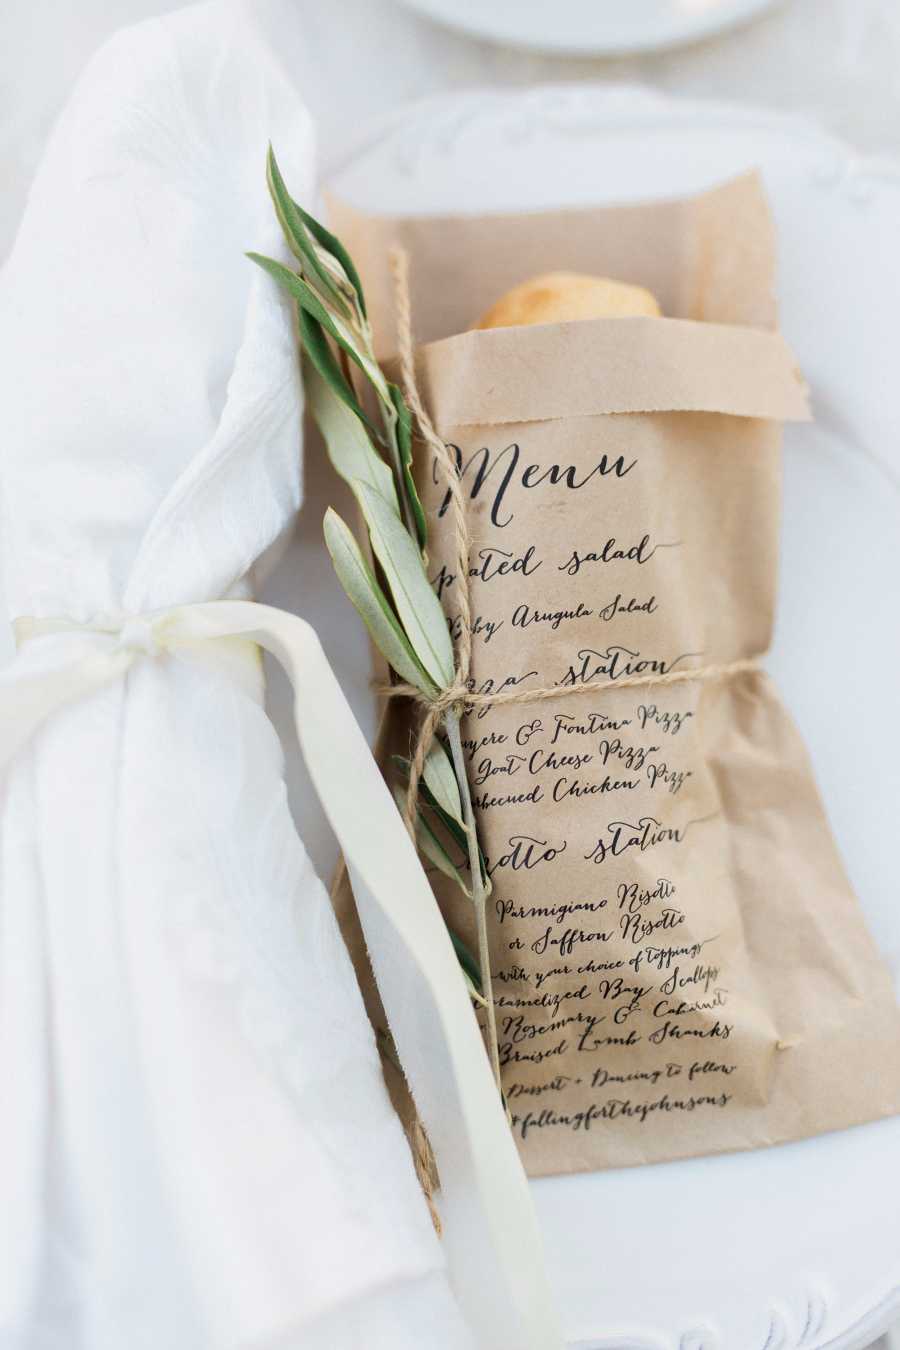 Menu
plated salad
Baby Arugula Salad
pizza station
Gruyere & Fontina Pizza
Goat Cheese Pizza
Barbecued Chicken Pizza
risotto station
Parmigiano Risotto
or Saffron Risotto
with your choice of toppings
Caramelized Bay Scallops
Rosemary & Cabernet
Braised Lamb Shanks
Dessert + Dancing to follow
#fallingforthejohnsons